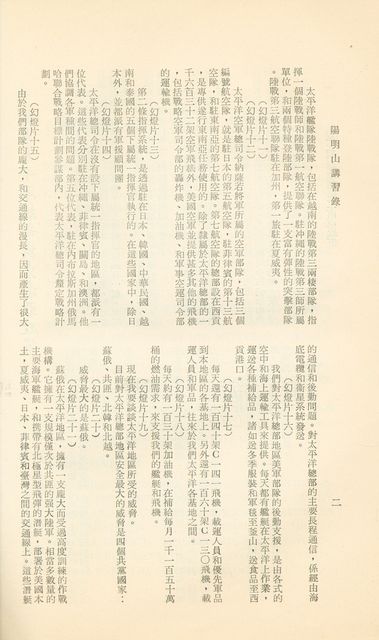 陽明山講習錄
二
太平洋艦隊陸戰隊，包括在越南的陸戰第三兩棲部隊，指
揮一個陸戰師和陸戰第一航空聯隊。駐沖繩的陸戰第三師所屬
單位，和兩個特種登陸部隊，提供了一支富有彈性的突擊部隊
。陸戰第三航空聯隊駐在加州，第一旅駐在夏威夷。
（幻燈片十二）
太平洋空軍總司令納薩若將軍所屬的空軍部隊，包括三個
編號航空隊，就是駐日本的第五航空隊，駐菲律賓的第十三航
空隊，和駐東南亞的第七航空隊。第七航空隊的總部設在西貢
，是專供遂行東南亞任務使用的。除了隸屬於太平洋總部的一
千六百三十二架空軍飛機外，美國空軍並提供甚多其他的飛機
，包括戰略空軍司令部的轟炸機、加油機，和軍事空運司令部
的運輸機。
（幻燈片十三）
第二條指揮系統，是透過駐在日本、韓國、中華民國、越
南和泰國的五個下屬統一指揮官執行的。在這些國家中，除日
本外，並都派有軍援顧問團。
（幻燈片十四）
太平洋總司令在沒有設下屬統一指揮官的地區，都派有一
位代表。這些代表分別駐在沖繩、菲律賓、關島、和澳洲。他
們協調各軍種間的問題。第五位代表，駐在內布拉斯加州俄馬
哈聯合戰略目標計劃參謀部內，代表太平洋總司令釐定戰略計
劃。
（幻燈片十五）
由於我們部隊的龐大，和交通線的漫長，因而產生了很大
的通信和後勤問題。對太平洋總部的主要長程通信，係經由海
底電纜和衛星系統發送。
（幻燈片十六）
太平洋總部地區美軍部隊的後勤支援，是由各式的
空中和海上運輸工具來提供。每天都有艦艇在太平洋上作業，
運送各種補給品，諸如送冬季服裝和軍毯至釜山，送食品至西
貢港口。
（幻燈片十七）
每天還有一百四十架C—一四一飛機，載運人員和優先軍品
到本地區的各基地上。另外還有一百六十架C—一三〇飛機，載
運人員和軍品，往來於我們太平洋各基地之間。
（幻燈片十八）
每天有一百三十架加油機，在補給每月一千一百五十萬
桶的燃油需求，來支援我們的艦艇和飛機。
（幻燈片十九）
現在我要談談太平洋地區所受的威脅。
目前對太平洋總部地區安全最大的威脅是四個共黨國家：
蘇俄、共匪、北韓和北越。
（幻燈片二十）
威脅最大的是蘇俄。
（幻燈片二十一）
蘇俄在太平洋地區，擁有一支龐大而受過高度訓練的作戰
機構。它擁有一支規模僅次於共匪的強大陸軍。相當多數量的
主要海軍艦艇，和携帶有北極星型飛彈的潛艇，部署於美國本
土，夏威夷、日本、菲律賓和臺灣之間的交通線上。這些潛艇